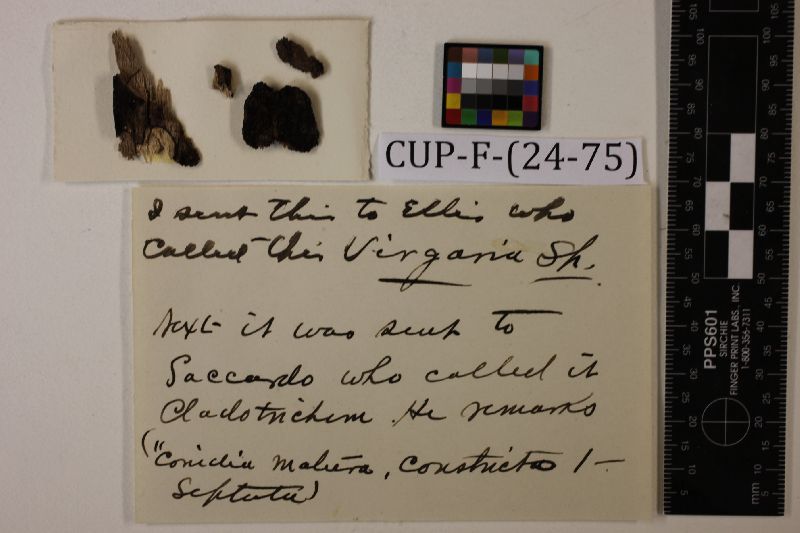 CUP-F-(24-75)
I sent this to Ellis who
called this Virgaria Sp.
Next it was sent to
Saccardo who called it
Cladotrichum. He remarks
("Conidia matura, constricto 1-
Septata)
PPS601
SIRCHIE
FINGER PRINT LABS., INC.
1-800-356-7311
mm 5 10 15 20 25 30 35 40 45 50 60 70 80 85 90 95 100 105